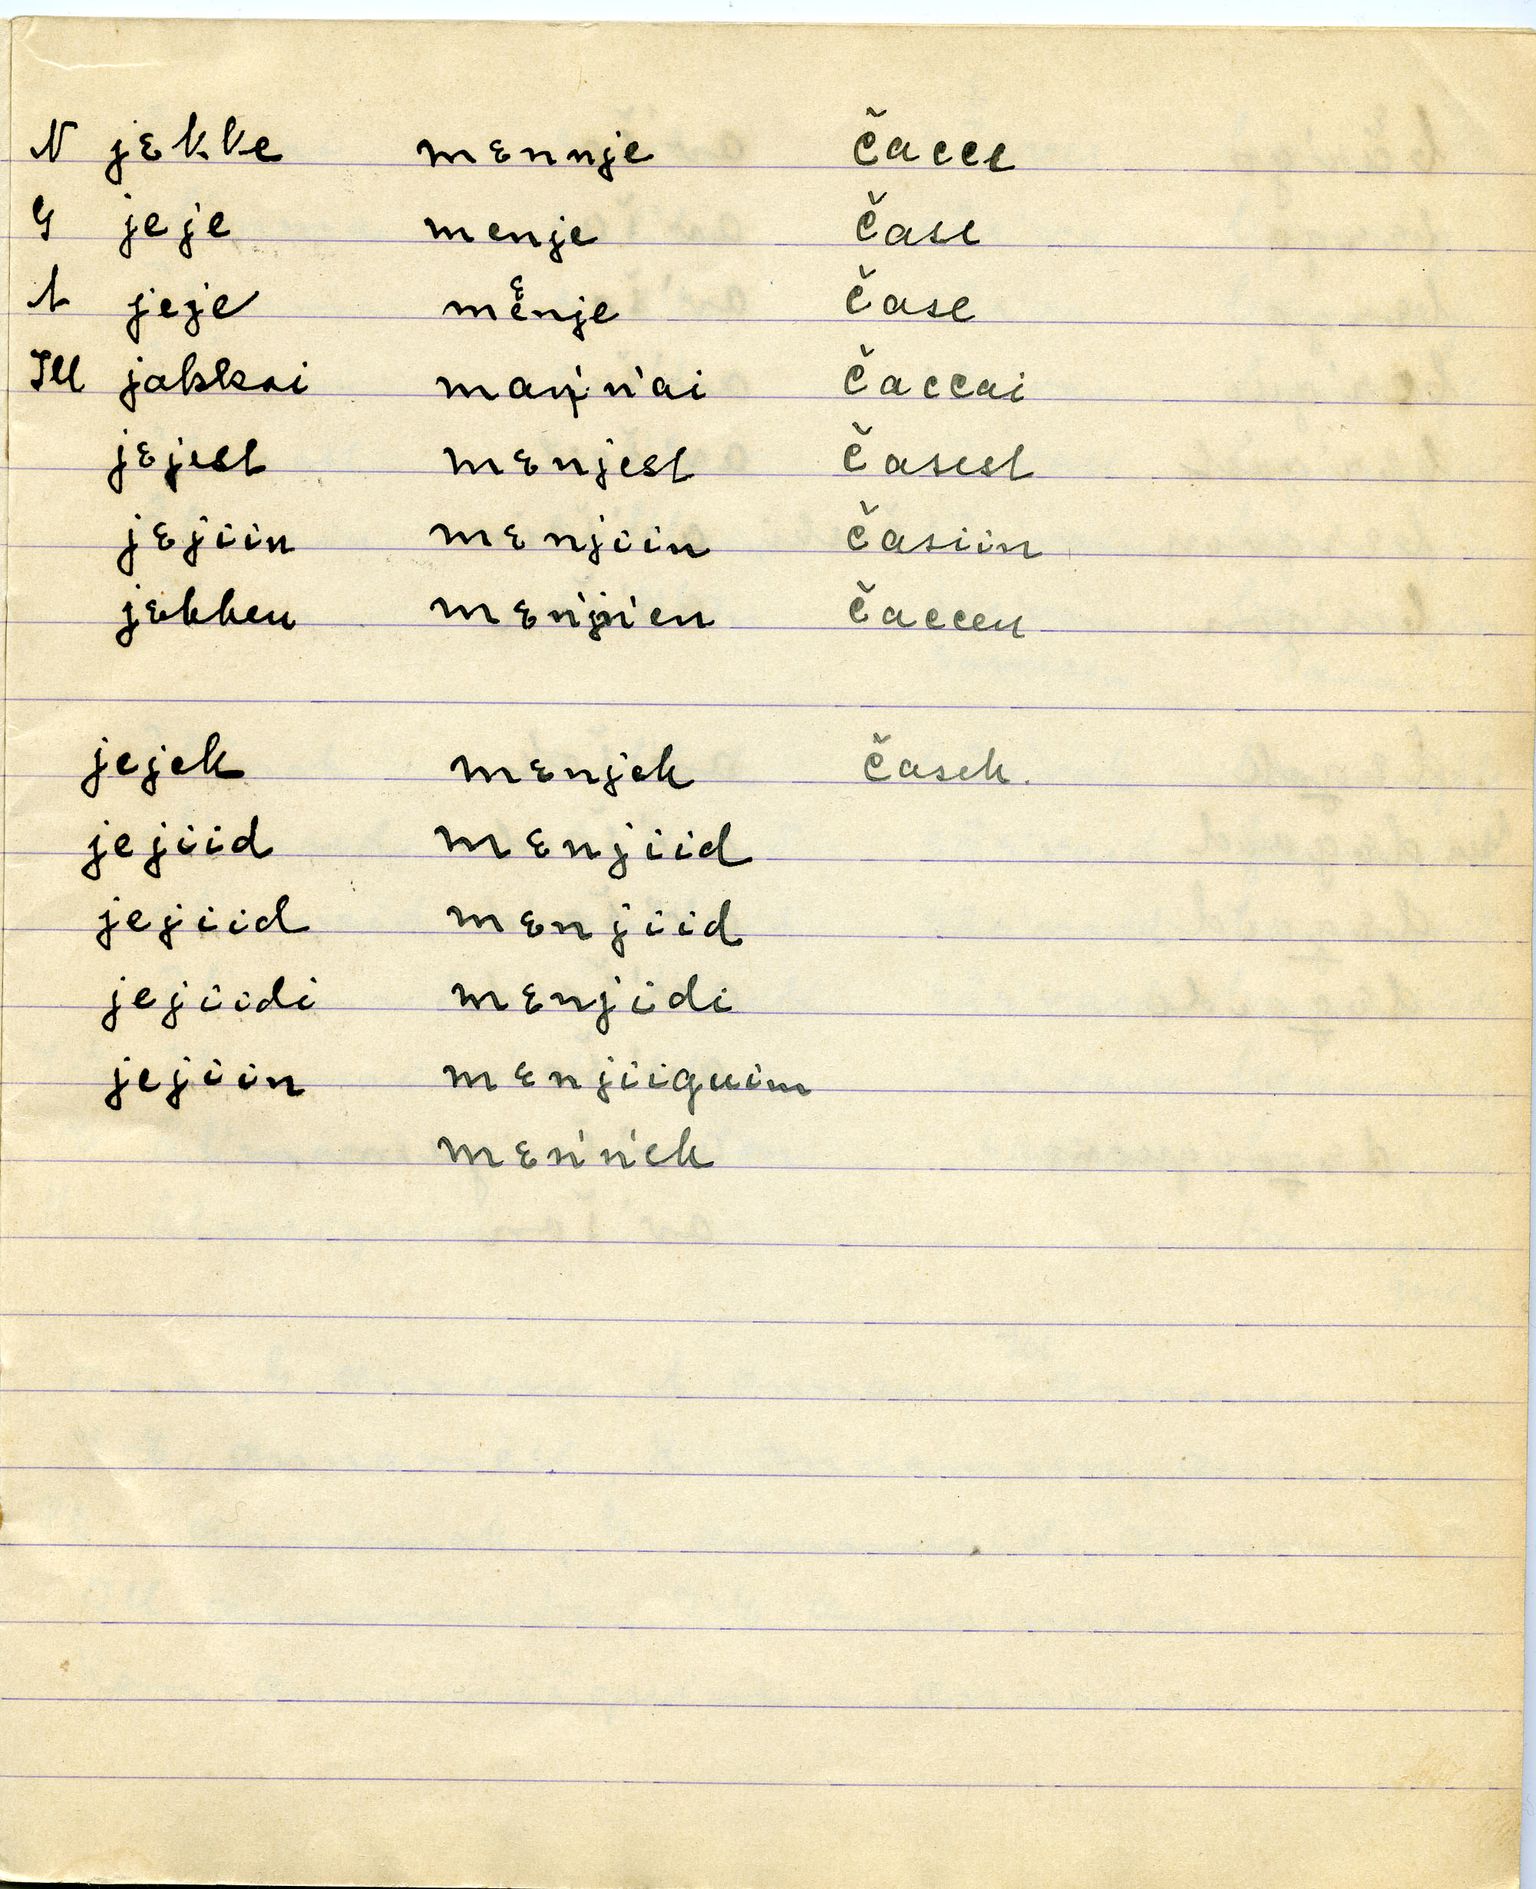 N jɛkke mɛnnje čacce
G jeje menje čase
A jeje mɛnje čase
Ill jakkai mańńai čaccai
jɛjest mɛnjest časest
jɛjiin mɛnjiin časiin
jɛkken mɛńńen čaccen
jejek mɛnjek časek.
jejiid mɛnjiid
jejiid mɛnjiid
jejiidi mɛnjidi
jejiin mɛnjiiguim
mɛńńek